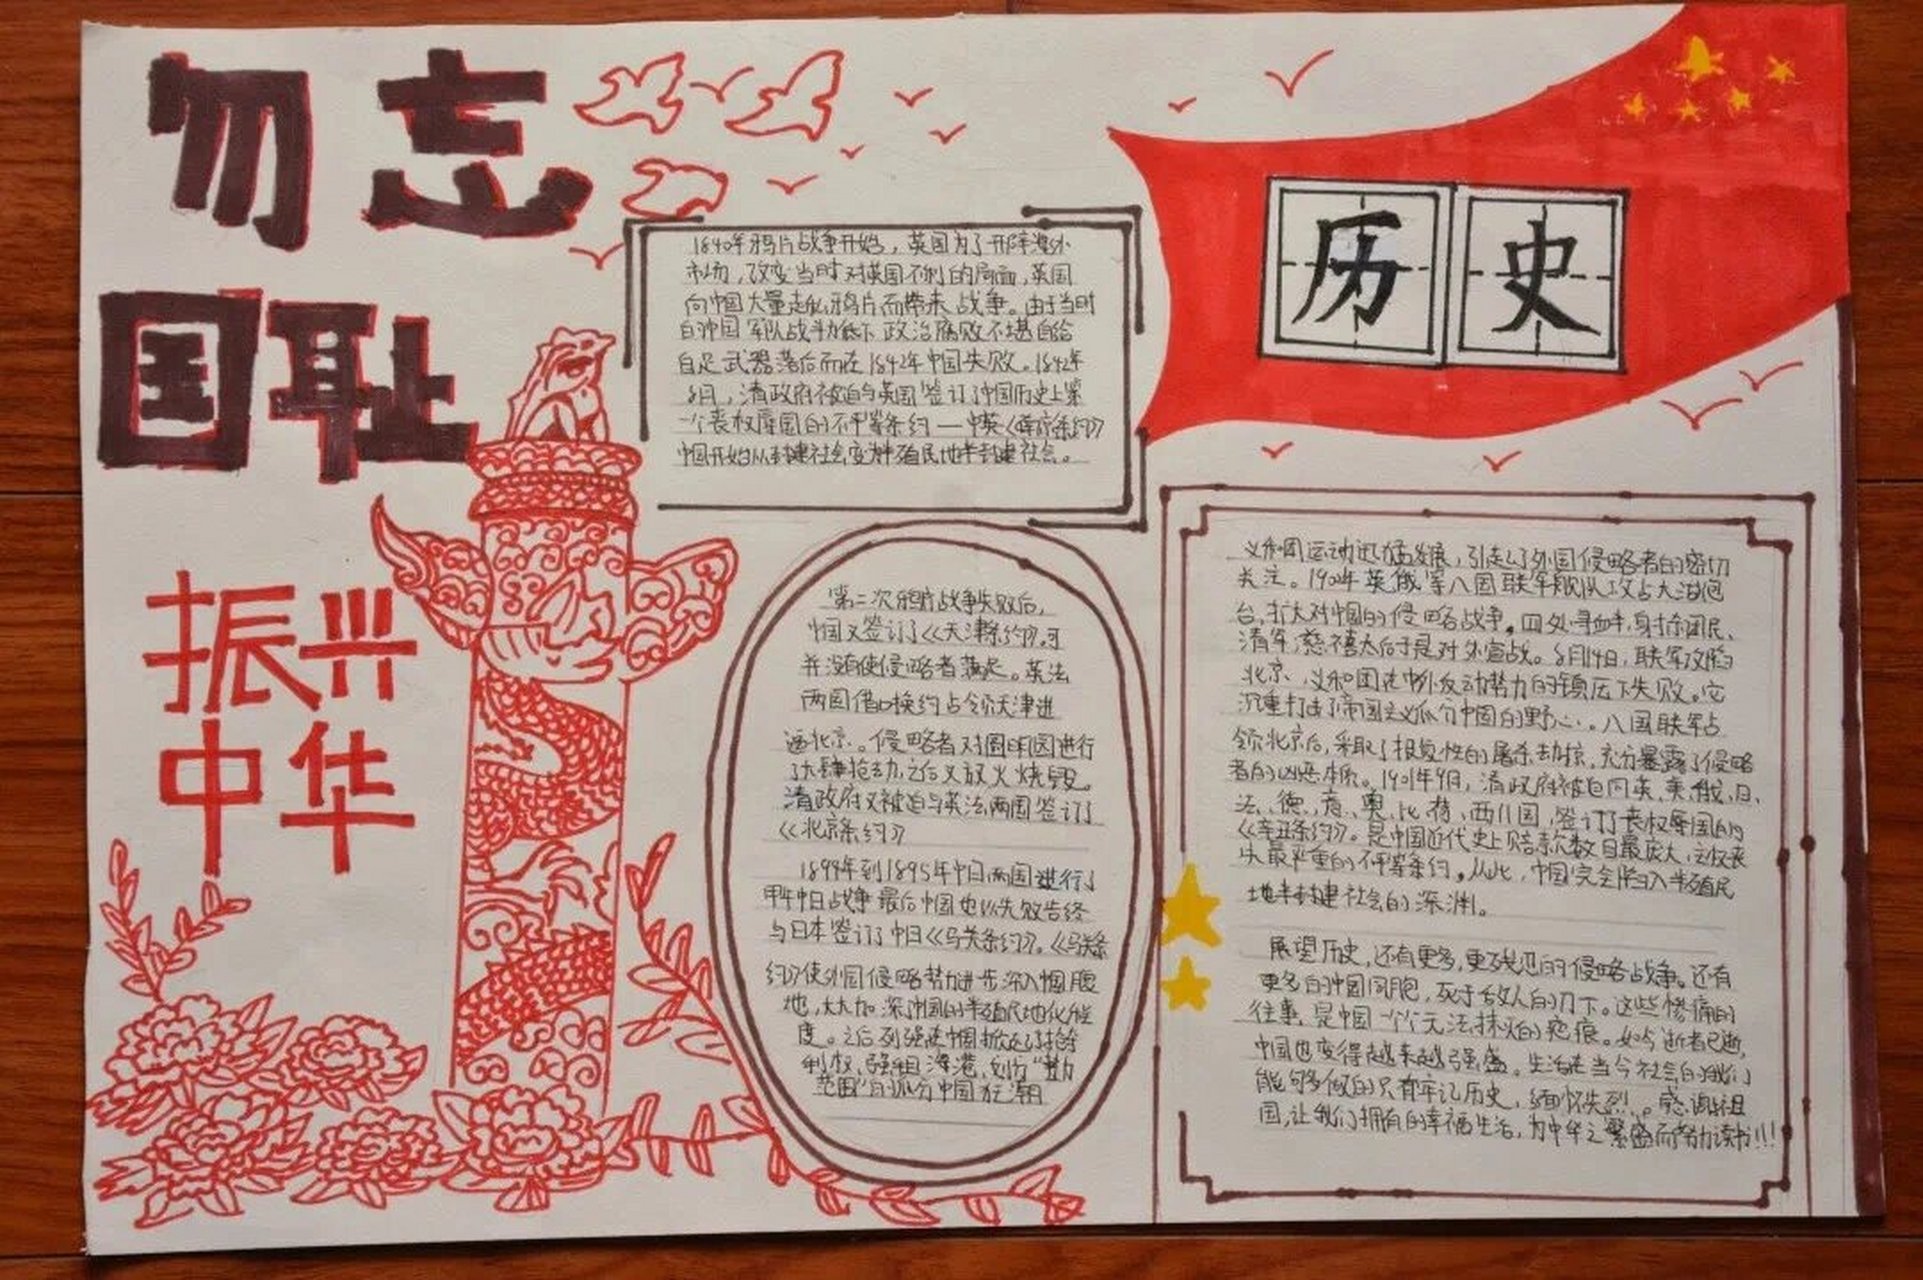 勿忘
国耻
振兴
中华
历史
1840年鸦片战争开始，英国为了开辟海外
市场，改变当时对英国不利的局面，英国
向中国大量走私鸦片而带来战争。由于当时
的中国军队战斗力低下政治腐败不堪自给
自足武器落后而在1842年中国失败。1842年
8月，清政府被迫与英国签订了中国历史上第
一个丧权辱国的不平等条约—中英《南京条约》
中国开始从封建社会变为半殖民地半封建社会。
第二次鸦片战争失败后，
中国又签订了《天津条约》。可
并没有使侵略者满足。英法
两国借口换约占领天津进
逼北京。侵略者对圆明园进行
了大肆抢劫，之后又放火烧毁。
清政府又被迫与英法两国签订了
《北京条约》
1894年到1895年中日两国进行了
甲午中日战争最后中国也以失败告终
与日本签订了中日《马关条约》。《马关条
约》使外国侵略势力进步深入中国腹
地，大大加深了中国的半殖民地化程
度。之后列强在中国掀起了抢夺
利权、强租港、划分“势力
范围”的瓜分中国狂潮
义和团运动迅猛发展，引起了外国侵略者的密切
关注。1900年英俄等八国联军舰队攻占大沽炮
台，扩大对中国的侵略战争。四处寻衅，射杀团民、
清军，慈禧太后于是对外宣战。8月14日，联军攻陷
北京，义和团在中外反动势力的镇压下失败。它
沉重打击了帝国主义瓜分中国的野心。八国联军占
领北京后，采取了报复性的屠杀劫掠，充分暴露了侵略
者的凶恶本质。1901年9月，清政府被迫同英、美、俄、日、
法、德、意、奥、比、荷、西11国，签订了丧权辱国的
《辛丑条约》。是中国近代史上赔款数目最庞大，主权丧
失最严重的不平等条约。从此，中国完全陷入半殖民
地半封建社会的深渊。
展望历史，还有更多，更残忍的侵略战争。还有
更多的中国同胞，死于敌人的刀下。这些惨痛的
往事，是中国一个个无法抹灭的疤痕。如今逝者已逝，
中国也变得越来越强盛。生活在当今社会的我们
能够做的只有牢记历史，缅怀先烈。感谢祖
国，让我们拥有的幸福生活，为中华之繁盛而努力读书!!!